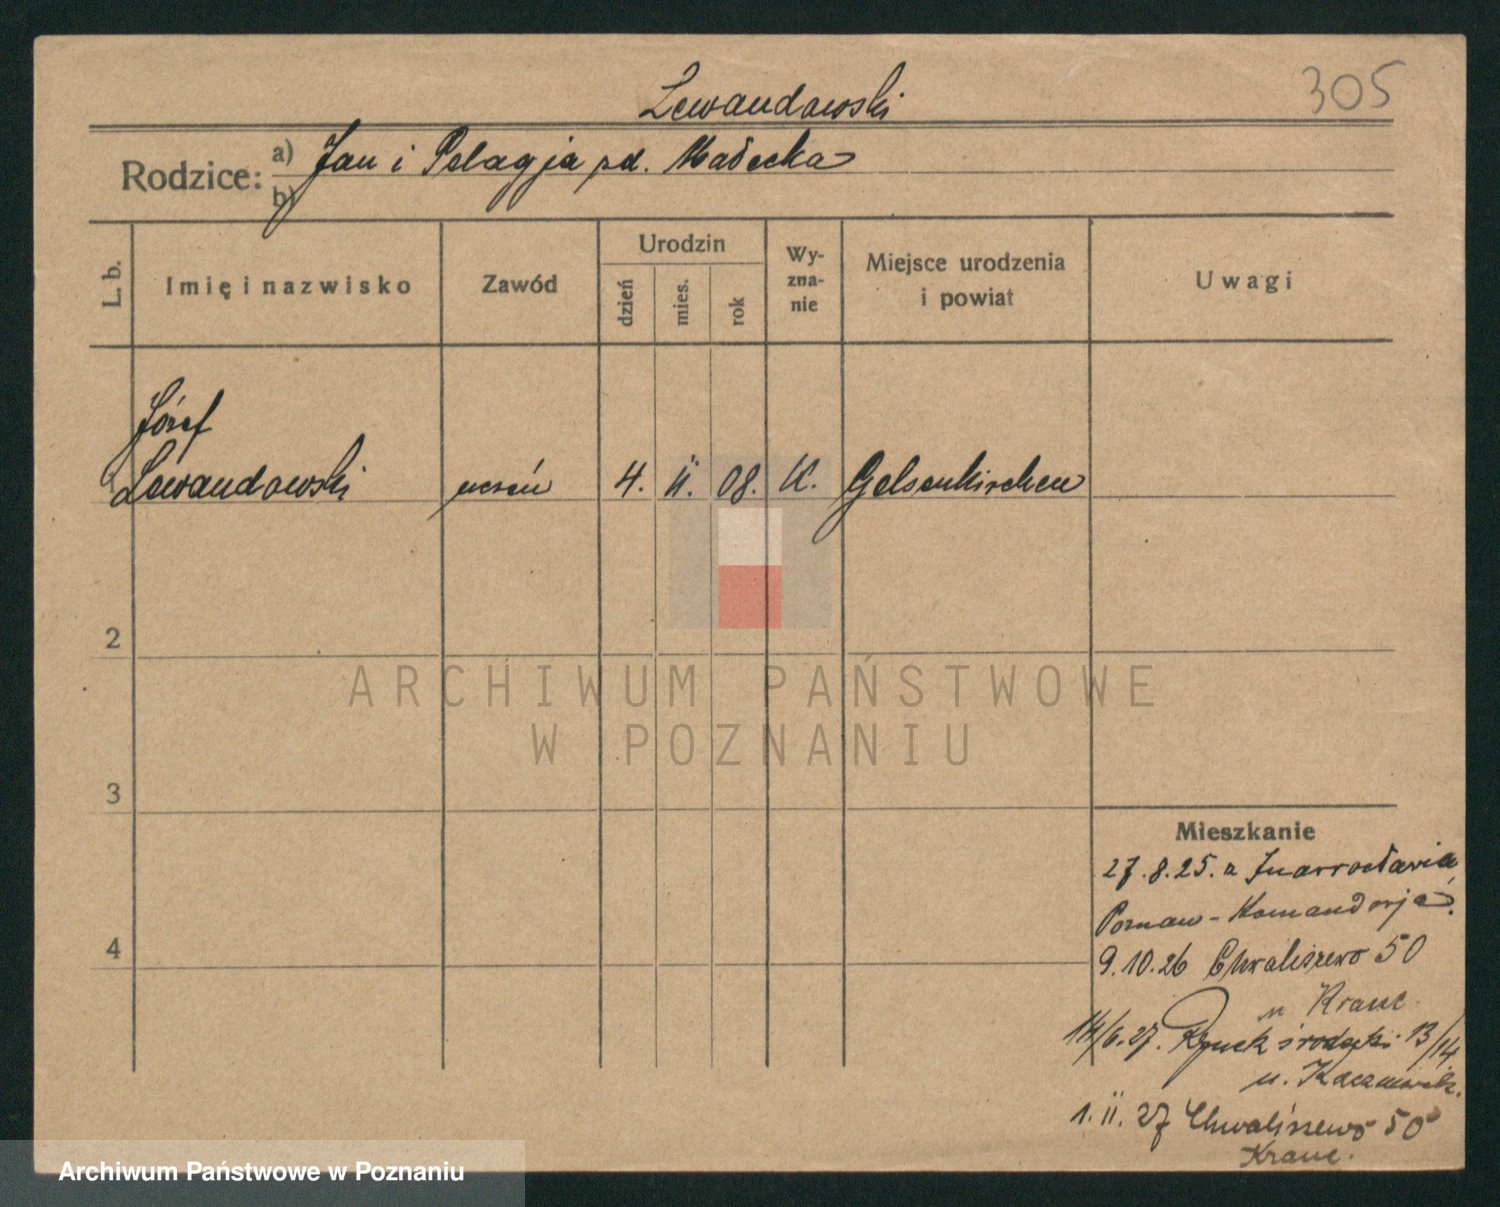 Lewandowski
305
Rodzice:
a) Jan i Pelagja zd. Małecka
b)
L. b.
Imię i nazwisko
Zawód
Urodzin
dzień
mies.
rok
Wy-
zna-
nie
Miejsce urodzenia
i powiat
Uwagi
Józef
Lewandowski uczeń 4. II. 08. K. Gelsenkirchen
2
ARCHIWUM PAŃSTWOWE
W POZNANIU
3
4
Mieszkanie
27.8.25. z Inowrocławia
Poznań - Komandorja.
9.10.26 Chwaliszewo 50
u Kranc
14/6.27. Rynek śródecki 13/14
u. Kaczmarek.
1. II. 27 Chwaliszewo 50
Kranc.
Archiwum Państwowe w Poznaniu